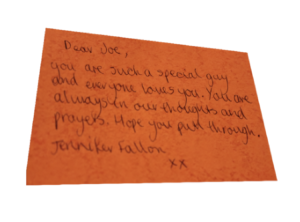 Dear Joe,
you are such a special guy
and everyone loves you. You are
always in our thoughts and
prayers. Hope you pull through.
Jennifer Fallon
xx